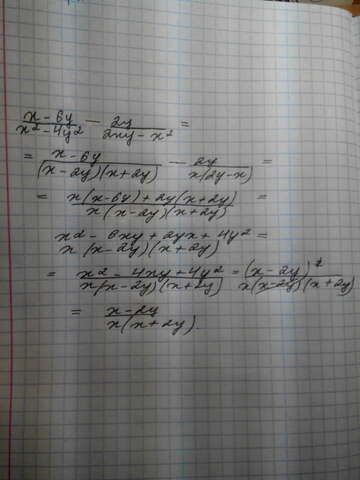 (x - 6y)/(x² - 4y²) - 2y/(2xy - x²) =
= (x - 6y)/((x - 2y)(x + 2y)) - 2y/(x(2y - x)) =
= (x(x - 6y) + 2y(x + 2y))/(x(x - 2y)(x + 2y)) =
(x² - 6xy + 2yx + 4y²)/(x(x - 2y)(x + 2y)) =
= (x² - 4xy + 4y²)/(x(x - 2y)(x + 2y)) = (x - 2y)²/(x(x - 2y)(x + 2y))
= (x - 2y)/(x(x + 2y)).